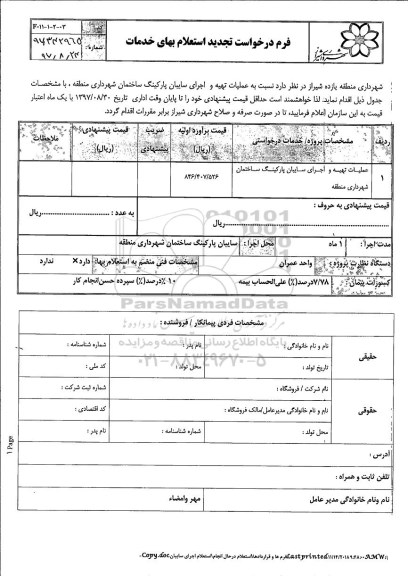 فرم درخواست تجدید استعلام بهای خدمات
کد: F-۰۱۱-۱-۲-۰۳
شماره: ۹۷۴۳۲۹۶۵
۹۷/۸/۲۳
شهرداری منطقه یازده شیراز در نظر دارد نسبت به عملیات تهیه و اجرای سایبان پارکینگ ساختمان شهرداری منطقه ، با مشخصات
جدول ذیل اقدام نماید. لذا خواهشمند است حداقل قیمت پیشنهادی خود را تا پایان وقت اداری تاریخ ۱۳۹۷/۰۸/۳۰ با یک ماه اعتبار
قیمت به این سازمان إعلام فرمایید، تا در صورت صرفه و صلاح شهرداری شیراز برابر مقررات اقدام گردد.
ردیف مشخصات پروژه/ خدمات درخواستی قیمت برآورد اولیه (ریال) ضریب پیشنهادی قیمت پیشنهادی: (ریال): ملاحظات
۱ عملیات تهیه و اجرای سایبان پارکینگ ساختمان ۸۴۶/۴۰۷/۵۲۶
شهرداری منطقه
قیمت پیشنهادی به حروف :
ریال به عدد : ریال
مدت اجرا : ۱ ماه محل اجرا: سایبان پارکینگ ساختمان شهرداری منطقه
دستگاه نظارت پروژه : واحد عمران مشخصات فنی منضم به استعلام بهاء: دارد× ندارد
کسورات پیمان : ۷/۷۸درصد(%) علی‌الحساب بیمه ۱۰ درصد(%) سپرده حسن‌انجام کار
ParsNamadData
پایگاه اطلاع رسانی مناقصه و مزایده
۰۲۱-۸۸۳۴۹۶۷۰-۵
مشخصات فردی پیمانکار / فروشنده :
حقیقی نام و نام خانوادگی : نام پدر : شماره شناسنامه :
تاریخ تولد : محل تولد : کد ملی :
حقوقی نام شرکت / فروشگاه : شماره ثبت شرکت :
نام و نام خانوادگی مدیرعامل/مالک فروشگاه : کد اقتصادی :
محل تولد : شماره شناسنامه : نام پدر :
آدرس :
تلفن ثابت و همراه :
نام ونام خانوادگی مدیر عامل مهر وامضاء
1 Page